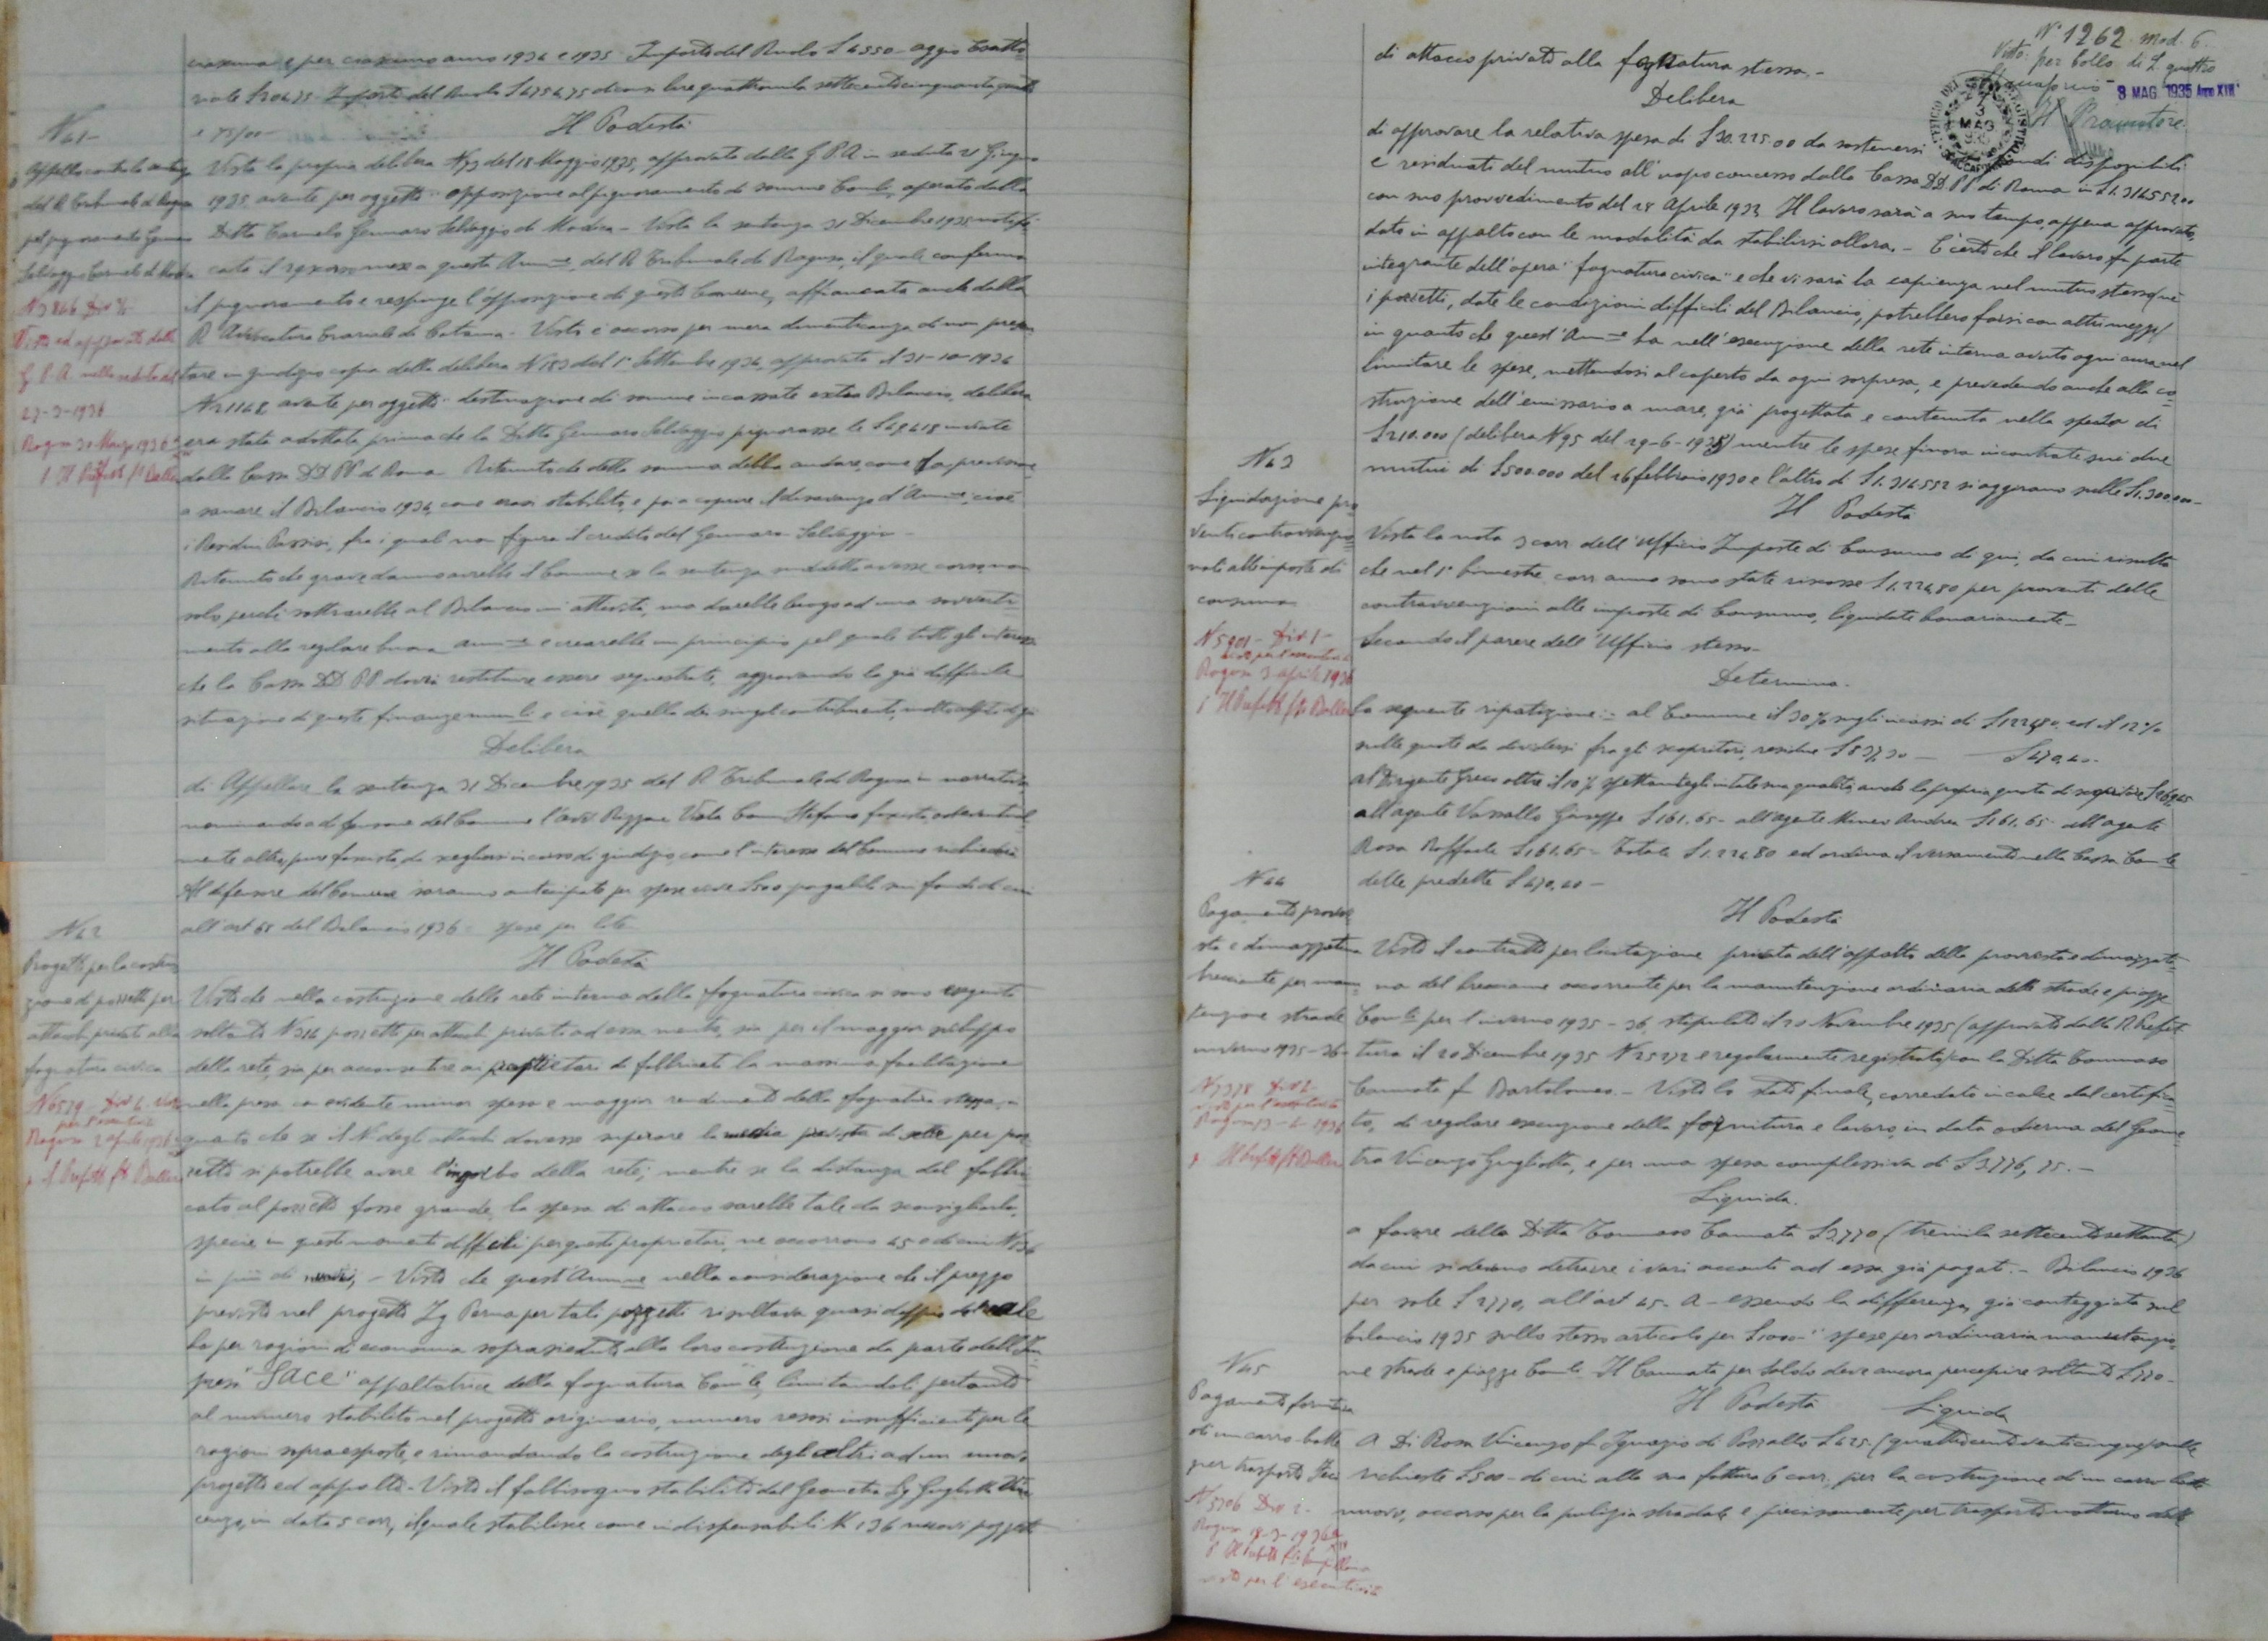 ciascuna e per ciascuno anno 1934 e 1935 Importo del Ruolo £ 4550 aggio Esatto=
riale £ 204.75 Importo del Ruolo £ 4754,75 diconsi lire quattromila settecentocinquantaquattro
e 75/00
Il Podestà
N 41-
Appello contro la sentenza
del R. Tribunale di Ragusa
pel pignoramento Gennaro
Selvaggio Carmelo di Modica
N 7846 Div 2/1
Visto ed approvato dalla
G. P. A. nella seduta del
27-3-1936
Ragusa 30 Marzo 1936
p. Il Prefetto
Vista la propria delibera N 73 del 18 Maggio 1935, approvata dalla G P.A. in seduta 21 Giugno
1935 avente per oggetto: opposizione al pignoramento di somme Com.li, operato dalla
Ditta Carmelo Gennaro Selvaggio di Modica - Vista la sentenza 31 Dicembre 1935 notifi=
cata il a questa Amm.ne, del R Tribunale di Ragusa, il quale conferma
il pignoramento e respinge l'opposizione di questo Comune, affiancata anche dalla
R Avvocatura Erariale di Catania - Visto è occorso per mera dimenticanza di non presen=
tare in giudizio copia della delibera N 183 del 1° Settembre 1934, approvata il 31-10-1934
N 21148 avente per oggetto: destinazione di somme incassate extra Bilancio, delibera
era stata adottata prima che la Ditta Gennaro Selvaggio pignorasse le £ 49418 inviate
dalla Cassa DD PP di Roma. Ritenuto che detta somma debba andare, come fa previsione
a sanare il Bilancio 1934, come erasi stabilito, e poi a coprire il disavanzo d'Amm.ne, cioè
i Residui Passivi, fra i quali non figura il credito del Gennaro Selvaggio -
Ritenuto che grave danno avrebbe il Comune se la sentenza suddetta avesse corso, non
solo perchè sottrarrebbe al Bilancio attività, ma darebbe luogo ad uno sovverti=
mento alla regolare buona amm.ne e creerebbe un principio pel quale tutti gli interessi
che la Cassa DD PP dovrà restituire essere sequestrati, aggravando la già difficile
situazione di queste finanze mun.li e cioè quella dei singoli contribuenti, molto
Delibera
di Appellare la sentenza 31 Dicembre 1935 del R Tribunale di Ragusa in narrativa
nominando a difensore del Comune l'avv. Rizzone Viola Com Stefano fascista, od eventual=
mente altro, pure fascista, da scegliersi in corso di giudizio, come l'interesse del Comune richiederà
Al difensore del Comune saranno anticipate per spese vive £ 500 pagabili sui fondi di cui
all'art 65 del Bilancio 1936: spese per lite
N 42
Progetto per la costru=
zione di pozzetti per
attacchi privati alla
fognatura civica
N 6579 Div 2 Visto
per l'esecutività
Ragusa 2 aprile 1936
p. Il Prefetto
Il Podestà
Visto che nella costruzione della rete interna della fognatura civica si sono eseguiti
soltanto N 314 pozzetti per attacchi privati ad essa mentre, sia per il maggior sviluppo
della rete, sia per acconsentire ai proprietari di fabbricati la massima facilitazione
nella presa con evidente minor spesa e maggior rendimento della fognatura stessa, in
quanto che se il N degli attacchi dovesse superare la media prevista di sette per poz=
zetto si potrebbe avere l'ingorbo della rete; mentre se la distanza dal fabbri=
cato al pozzetto fosse grande, la spesa di attacco sarebbe tale da sconsigliarla,
specie in questi momenti difficili per questi proprietari, ne occorrono 450 di cui N 136
in più di - Visto che quest'Amm.ne nella considerazione che il prezzo
previsto nel progetto Ig Perna per tali pozzetti risultava quasi doppio del reale
ha per ragioni di economia soprasieduto alla loro costruzione da parte dell'Im=
presa "SACE" appaltatrice della fognatura Com.le, limitandoli pertanto
al numero stabilito nel progetto originario, numero resosi insufficiente per le
ragioni sopraesposte, e rimandando la costruzione degli altri ad un nuovo
progetto ed appalto - Visto il fabbisogno stabilito dal Geometra Sg Gugliotta Vin=
cenzo, in data 5 corr, il quale stabilisce come indispensabili N 136 nuovi pozzetti
N° 1262 mod. 6.
Visto per bollo di £ quattro
Scaccaforno
8 MAG 1935 Anno XIII°
di attacco privato alla fognatura stessa. -
Delibera
di approvare la relativa spesa di £ 30.225.00 da sostenersi fondi disponibili
e residuati del mutuo all'uopo concesso dalla Cassa DD. PP di Roma in £ 1.314.552.00
con suo provvedimento del 28 Aprile 1933 Il lavoro sarà a suo tempo, appena approvato,
dato in appalto con le modalità da stabilirsi allora. - È certo che il lavoro fa parte
integrante dell'opera "fognatura civica" e che vi sarà la capienza nel mutuo stesso (nè
i pozzetti, date le condizioni difficili del Bilancio, potrebbero farsi con altri mezzi)
in quanto che quest'Amm.ne ha nell'esecuzione della rete interna avuto ogni cura nel
limitare le spese, mettendosi al coperto da ogni sorpresa, e prevedendo anche alla co=
struzione dell'emissario a mare, già progettata e contenuta nella spesa di
£ 210.000 (delibera N 95 del 29-6-1935) mentre le spese finora incontrate sui due
mutui di £ 500.000 del 26 febbraio 1930 e l'altro di £ 1.314.552 si aggirano sulle £ 1.300.000 -
N 43
Liquidazione pro=
venti contravvenzio=
nali alle imposte di
consumo
N 5901 - Div 1 -
visto per l'esecutività
Ragusa 3 aprile 1936
p. Il Prefetto
Il Podestà
Vista la nota 3 corr dell'Ufficio Imposte di Consumo di qui, da cui risulta
che nel 1° bimestre corr anno sono state riscosse £ 1.224,80 per proventi delle
contravvenzioni alle imposte di Consumo, liquidate bonariamente -
Secondo il parere dell'Ufficio stesso
Determina.
la seguente ripartizione: al Comune il 30% sugli incassi di £ 1224,80 ed il 12%
sulle quote da dividersi fra gli scopritori, residue £ 857,30 - £ 470.40.
al Dirigente Greco oltre il 10% spettantegli in tale sua qualità, anche la propria quota di scopritore £ 269,45
all'agente Vassallo Giuseppe £ 161.65 - all'agente Mineo Andrea £ 161.65 - all'agente
Rosa Raffaele £ 161.65 - Totale £ 1.224.80 ed ordina il versamento nella Cassa Com.le
delle predette £ 470.40 -
N 44
Pagamento provvi=
sta e dimazzatura
brecciame per manu=
tenzione strade
inverno 1935-36
N 7378 Div 2
visto per l'esecutività
Ragusa 13-4-1936
p. Il Prefetto
Il Podestà
Visto il contratto per licitazione privata dell'appalto della provvista e dimazzatu=
ra del brecciame occorrente per la manutenzione ordinaria delle strade e piazze
Com.li per l'inverno 1935-36, stipulato il 20 Novembre 1935 (approvato dalla R. Prefet=
tura il 20 Dicembre 1935 N 25272 e regolarmente registrato) con la Ditta Tommaso
Cannata fu Bartolomeo. - Visto lo stato finale, corredato in calce dal certifica=
to, di regolare esecuzione della fornitura e lavoro, in data odierna del Geome=
tra Vincenzo Gugliotta, e per una spesa complessiva di £ 3.776,75. -
Liquida.
a favore della Ditta Tommaso Cannata £ 3.770 (tremila settecentosettanta)
da cui si devono detrarre i vari acconti ad essa già pagati. - Bilancio 1936
per sole £ 2770, all'art 45. A - essendo la differenza, già conteggiata sul
bilancio 1935 sullo stesso articolo per £ 1000 - "spese per ordinaria manutenzio=
ne strade e piazze Com.li Il Cannata per saldo deve ancora percepire soltanto £ 770 -
N 45
Pagamento fornitura
di un carro-botte
per trasporto feci
N 5706 Div 2.
Ragusa 18-3-1936
p Il Prefetto
visto per l'esecutività
Il Podestà Liquida
A Di Rosa Vincenzo fu Ignazio di Pozzallo £ 425. (quattrocentoventicinque) sulle
richieste £ 500 - di cui alla sua fattura 6 corr, per la costruzione di un carro botte
nuovo, occorso per la pulizia stradale e precisamente per trasporto notturno delle